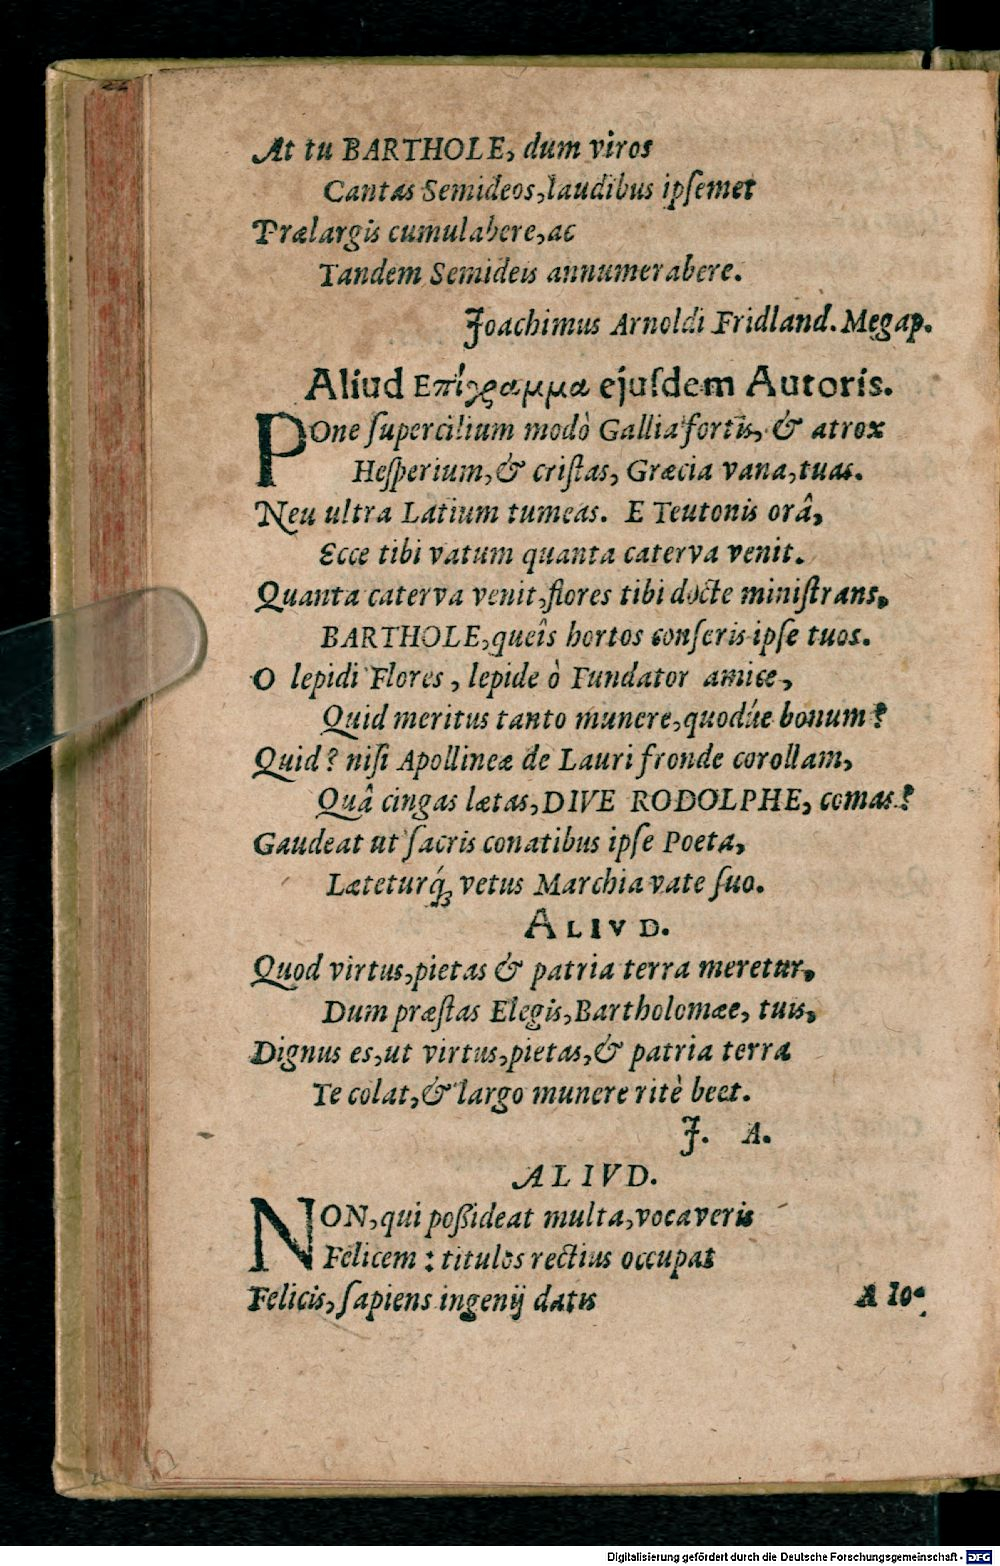 At tu BARTHOLE, dum viros
Cantas Semideos, laudibus ipſemet
Prælargis cumulabere, ac
Tandem Semideis annumerabere.
Joachimus Arnoldi Fridland. Megap.
Aliud Επίγραμμα ejuſdem Autoris.
POne ſupercilium modò Gallia fortis, & atrox
Heſperium, & criſtas, Græcia vana, tuas.
Neu ultra Latium tumeas. E Teutonis orâ,
Ecce tibi vatum quanta caterva venit.
Quanta caterva venit, flores tibi docte miniſtrans,
BARTHOLE, queîs hortos conſeris ipſe tuos.
O lepidi Flores, lepide ò Fundator amice,
Quid meritus tanto munere, quodúe bonum?
Quid? niſi Apollineæ de Lauri fronde corollam,
Quâ cingas lætas, DIVE RODOLPHE, comas?
Gaudeat ut ſacris conatibus ipſe Poeta,
Læteturq́ꝫ vetus Marchia vate ſuo.
ALIVD.
Quod virtus, pietas & patria terra meretur,
Dum præſtas Elegis, Bartholomæe, tuis,
Dignus es, ut virtus, pietas, & patria terra
Te colat, & largo munere ritè beet.
J. A.
ALIVD.
NON, qui poßideat multa, vocaveris
Felicem: titulos rectius occupat
Felicis, ſapiens ingenij datis
A Io-
Digitalisierung gefördert durch die Deutsche Forschungsgemeinschaft - DFG